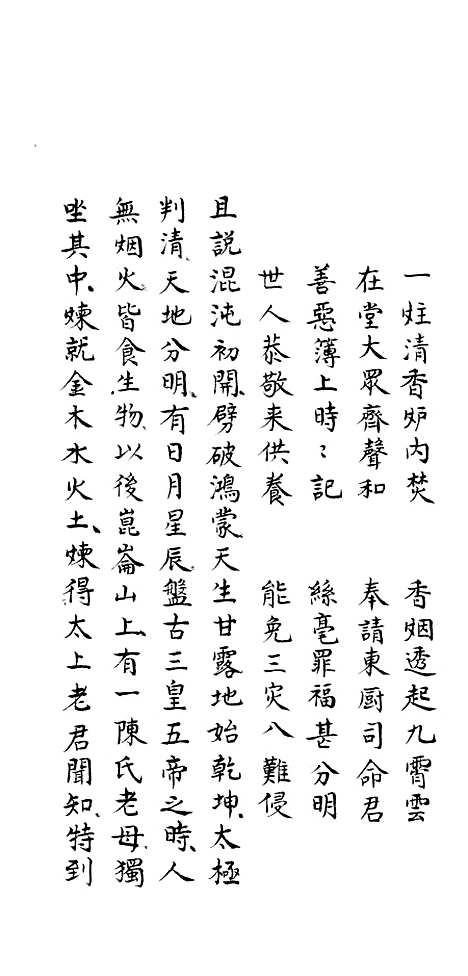 一炷清香炉内焚　香烟透起九霄雲
在堂大眾齊聲和　奉請東厨司命君
善惡簿上時〻記　絲毫罪福甚分明
世人恭敬来供養　能免三灾八難侵
且説混沌初開、劈破鴻蒙、天生甘露地始乾坤、太極
判清、天地分明、有日月星辰、盤古三皇五帝之時、人
無烟火、皆食生物、以後崑崙山上、有一陳氏老母、獨
坐其中、煉就金木水火土、煉得太上老君聞知、特到